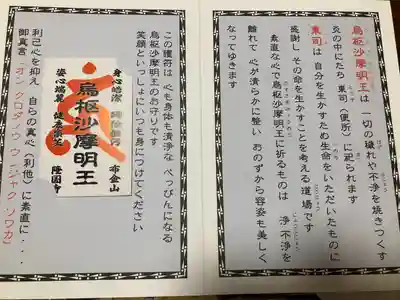 烏枢沙摩明王は 一切の穢れや不浄を焼きつくす
炎の中にたち 東司(便所)に祀られます
東司は 自分を生かすため生命をいただいたものに
感謝し その命を生かすことを考える道場です
素直な心で烏枢沙摩明王に祈るものは 浄不浄を
離れて 心が清らかに整い おのずから容姿も美しく
なってゆきます
この護符は 心も身体も清浄な べっぴんになる
烏枢沙摩明王のお守りです
笑顔といっしょにいつも身につけてください
身心皓潔
布金山
烏枢沙摩明王
姿心端麗 健康
隆国寺
利己心を抑え 自らの真心(利他)に素直に・・・
御真言(オン クロダノウ ウンジャク ソワカ)